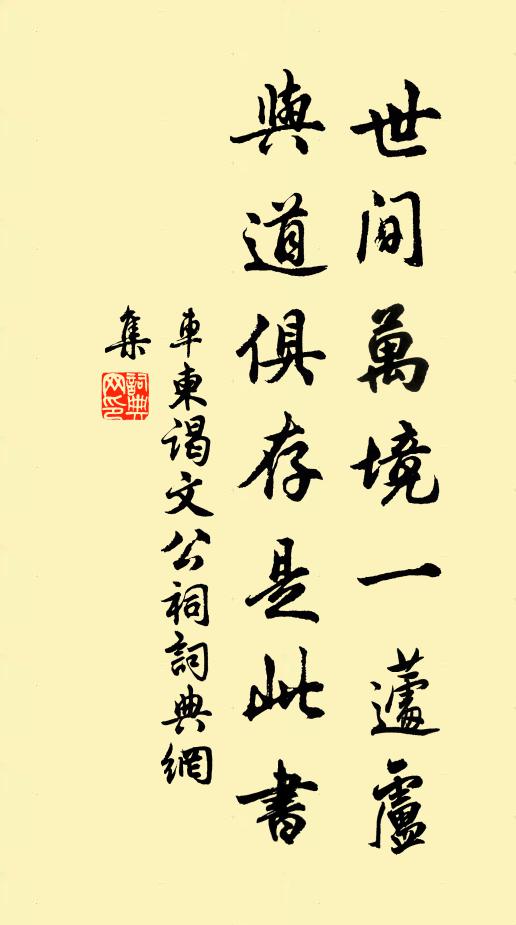 世间萬境一蘧廬
與道俱存是此書
車東謁文公祠詞典網
集
詞典网印